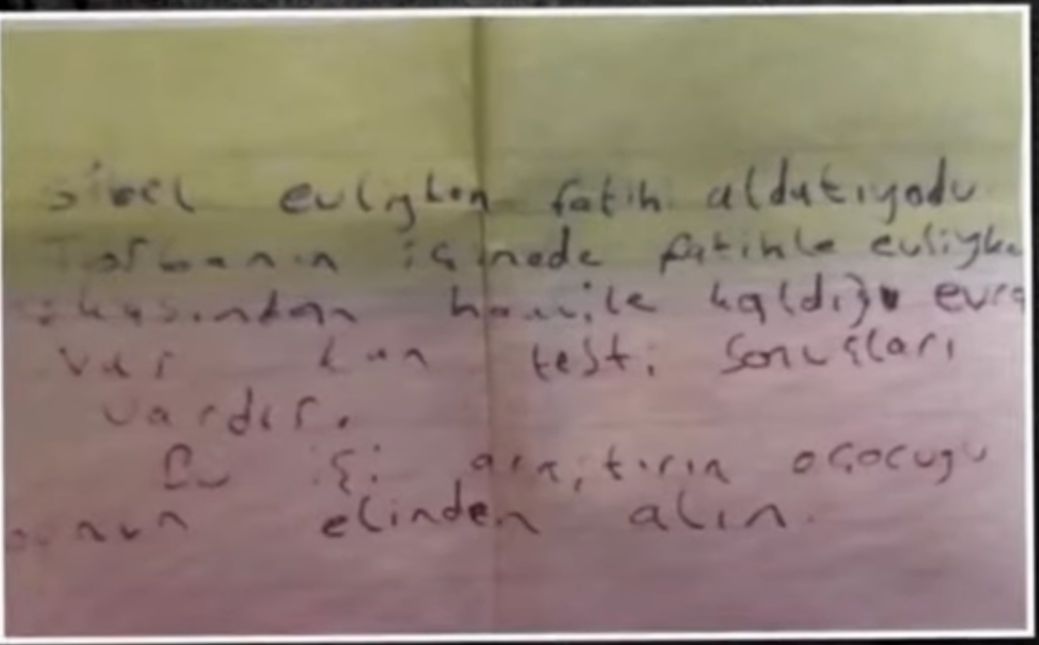 sibel evliyken fatih aldatıyodu
Torbanın içinede fatihle evliyke
hamile kaldığı evra
var kan testi Sonuçları
vardır.
Bu işi arıştırın oçocugu
onun elinden alın.